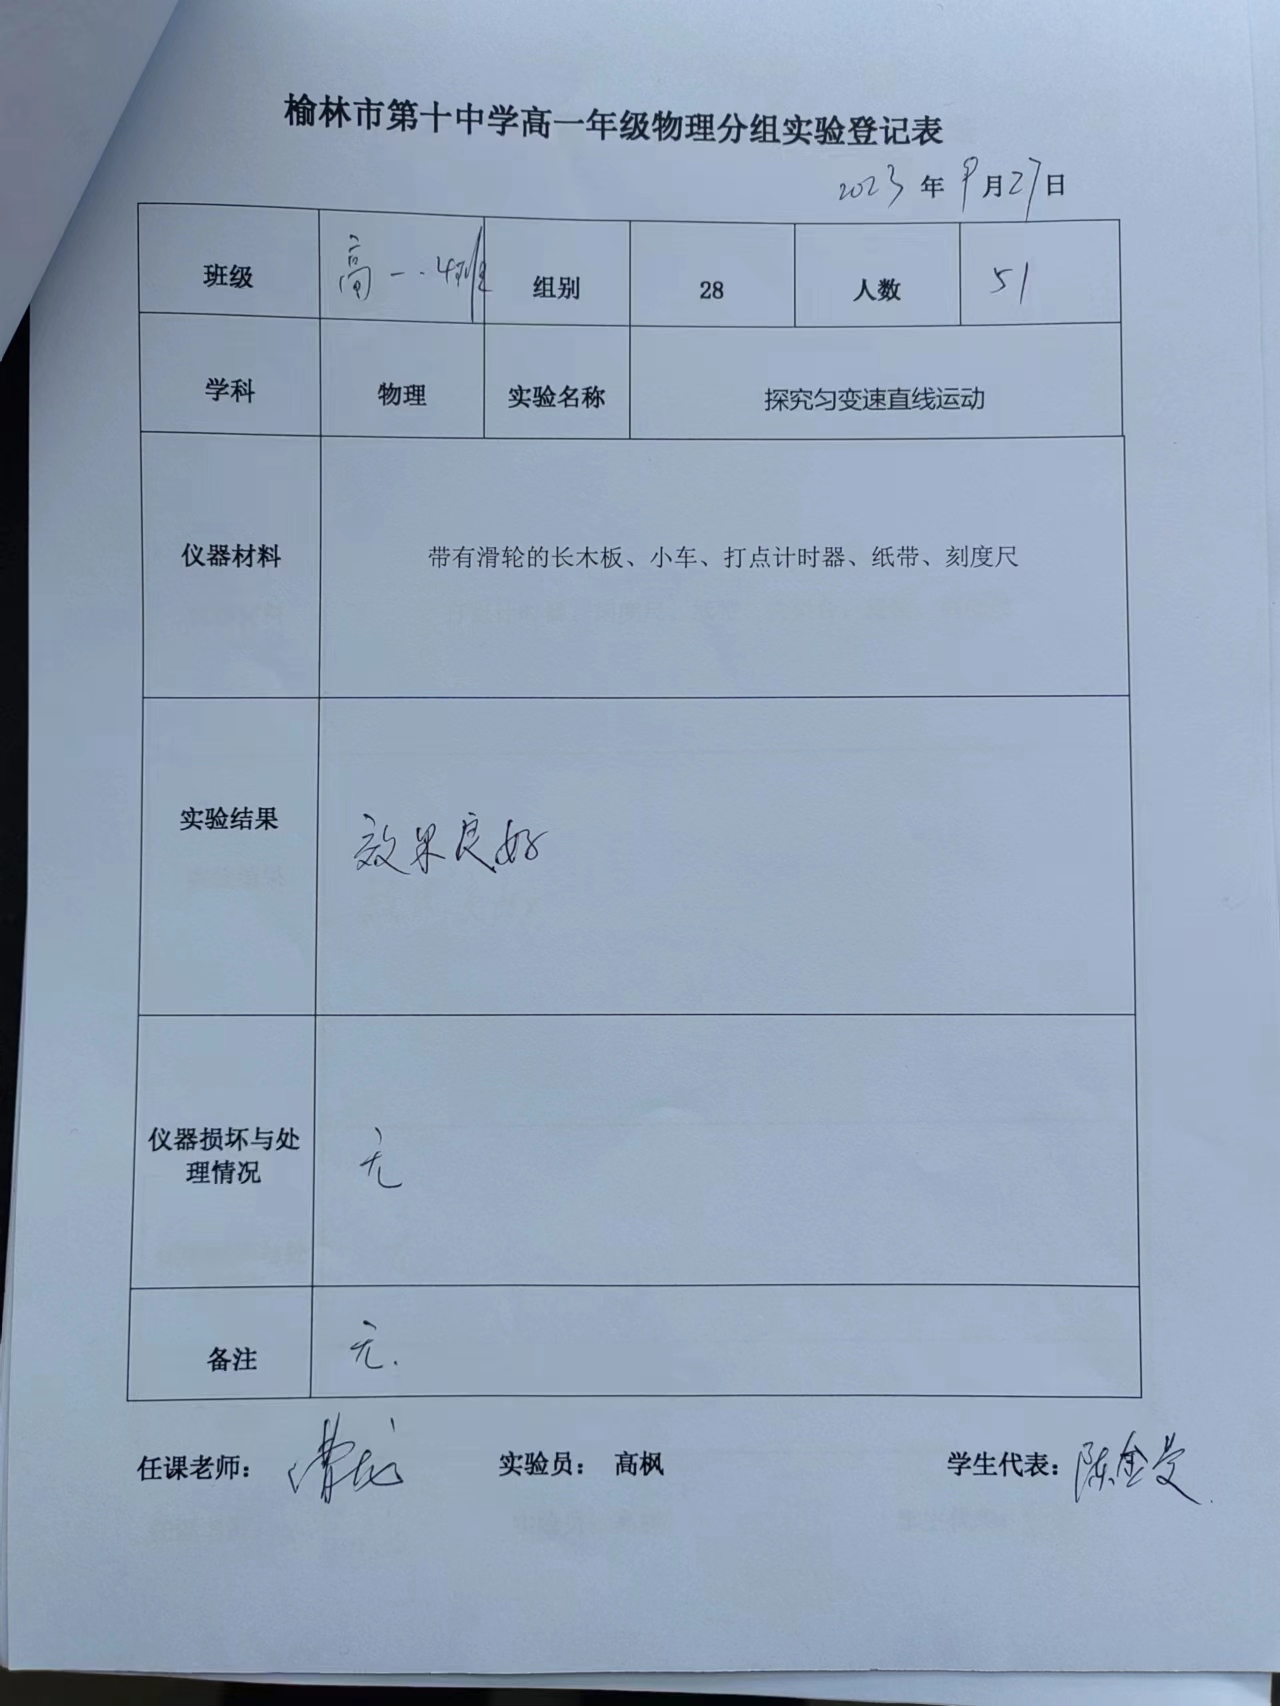 榆林市第十中学高一年级物理分组实验登记表
2023 年 9 月 27 日
班级 高一.4班 组别 28 人数 51
学科 物理 实验名称 探究匀变速直线运动
仪器材料 带有滑轮的长木板、小车、打点计时器、纸带、刻度尺
实验结果 效果良好
仪器损坏与处
理情况 无
备注 无.
任课老师： 实验员： 高枫 学生代表：陈金